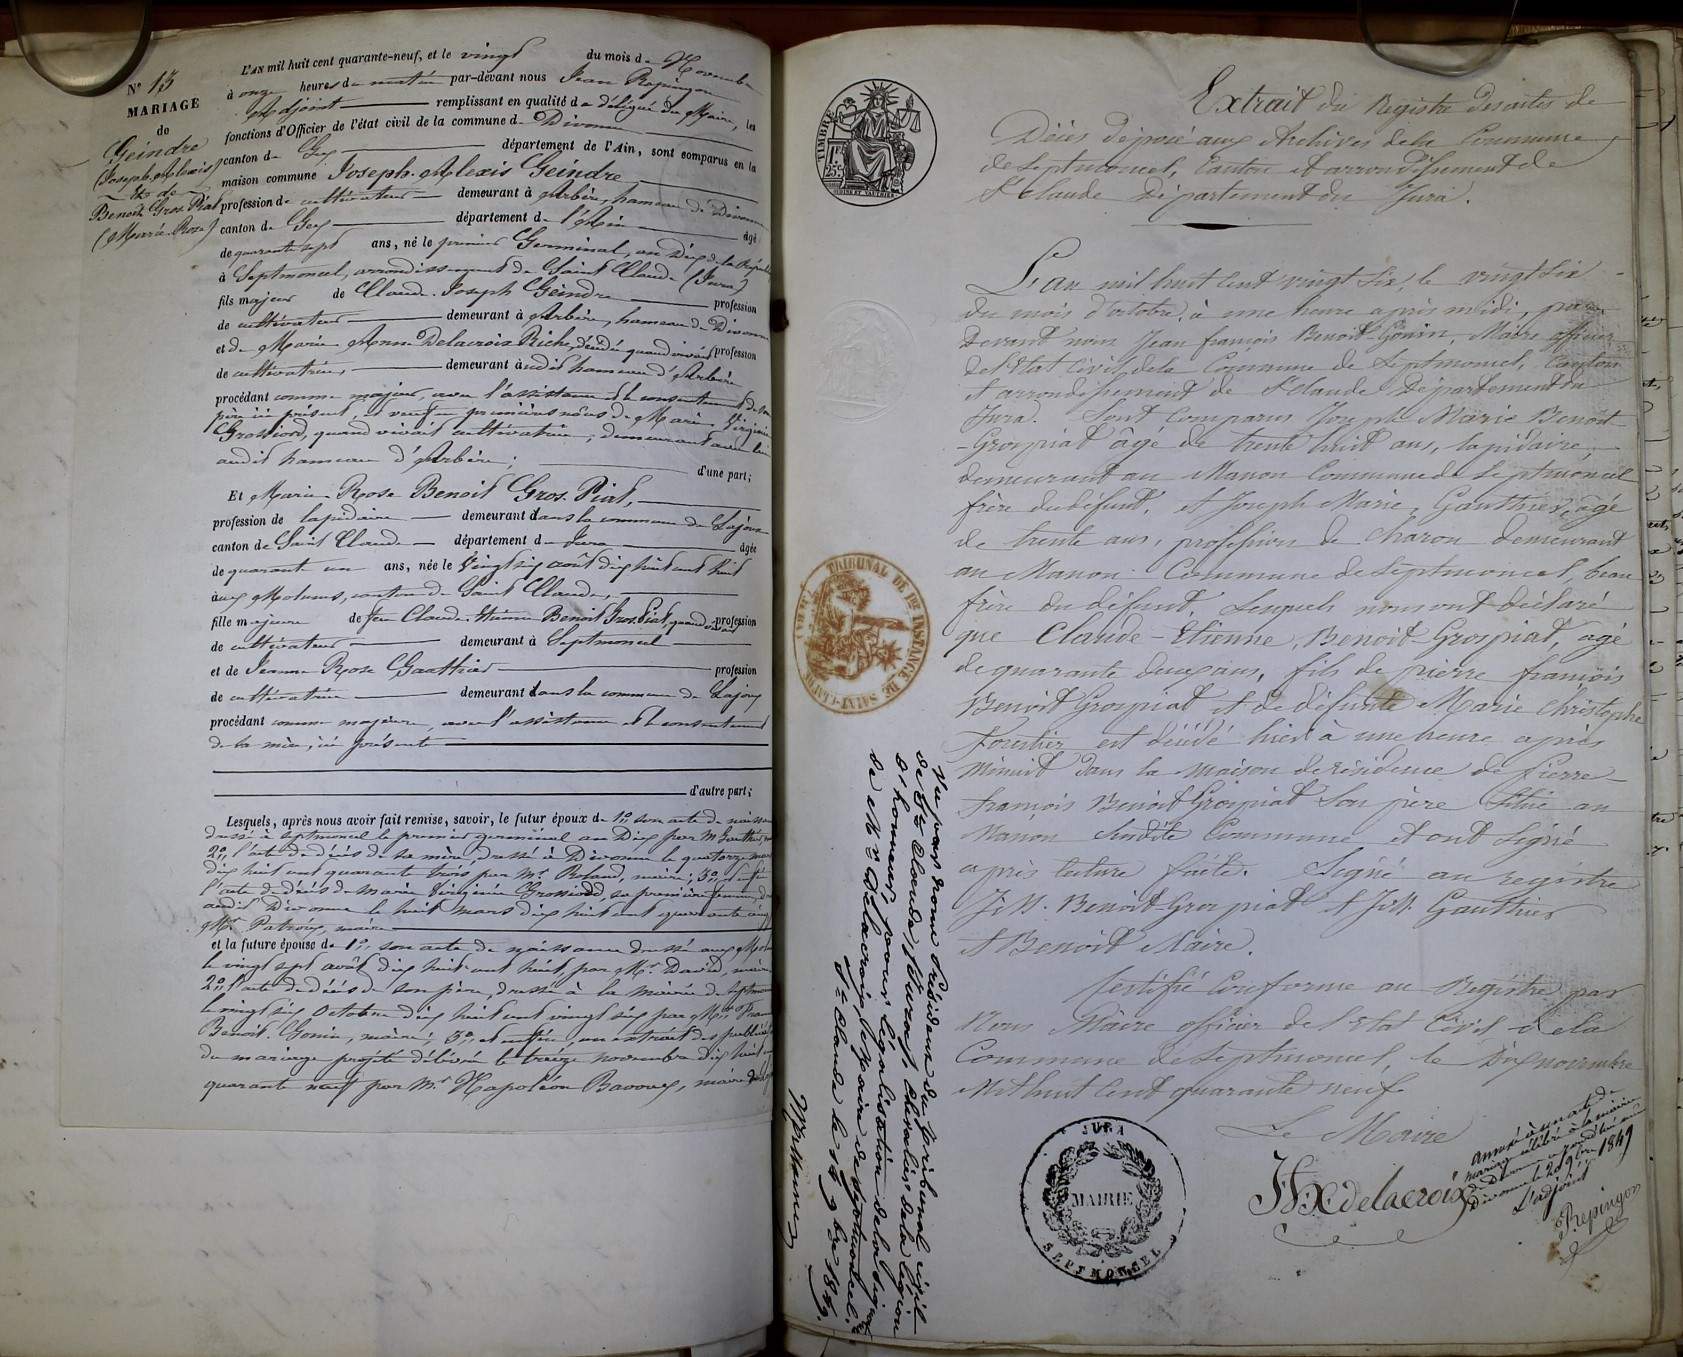 N° 13
MARIAGE
de
Geindre
(Joseph-Alexis)
Et de
Benoit Gros Piat
(Marie-Rose)
L'AN mil huit cent quarante-neuf, et le vingt du mois de Novembre
à onze heures du matin par-devant nous Jean Repingon
Adjoint remplissant en qualité de délégué du Maire, les
fonctions d'Officier de l'état civil de la commune de Divonne
canton de Gex département de l'Ain, sont comparus en la
maison commune Joseph-Alexis Geindre
profession de cultivateur demeurant à Arbère, hameau de Divonne
canton de Gex département de l'Ain âgé
de quarante sept ans, né le premier Germinal, an Dix de la République
à Septmoncel, arrondissement de Saint Claude (Jura)
fils majeur de Claude-Joseph Geindre profession
de cultivateur demeurant à Arbère, hameau de Divonne
et de Marie Anne Delacroix Riche, décédée quand vivait profession
de cultivatrice, demeurant audit hameau d'Arbère
procédant comme majeur, avec l'assistance et le consentement de son
père ici présent, et veuf en premières nôces de Marie Virginie
Grossiord, quand vivait cultivatrice, demeurant avec lui
audit hameau d'Arbère; d'une part;
Et Marie Rose Benoit Gros-Piat,
profession de lapidaire demeurant dans la commune de Lajoux
canton de Saint Claude département de Jura âgée
de quarante un ans, née le vingt six août dix huit cent huit
aux Molunes, canton de Saint Claude,
fille majeure de feu Claude-Etienne Benoit Gros Piat, quand vivait profession
de cultivateur demeurant à Septmoncel
et de Jeanne Rose Gauthier profession
de cultivatrice demeurant dans la commune de Lajoux
procédant comme majeure, avec l'assistance et le consentement
de sa mère, ici présente
d'autre part;
Lesquels, après nous avoir fait remise, savoir, le futur époux de 1°, son acte de naissance
dressé à Septmoncel le premier germinal an Dix par Mr Gauthier,
2°, l'acte de décès de sa mère, dressé à Divonne le quatorze mars
dix huit cent quarante trois par Mr Roland, maire; 3°, et enfin
l'acte de décès de Marie Virginie Grossiord sa première femme,
audit Divonne le huit mars dix huit cent quarante cinq
Mr Patroux, maire
et la future épouse de 1°, son acte de naissance dressé aux Molunes
le vingt sept août dix huit cent huit, par Mr David, maire
2°, l'acte de décès de son père, dressé à la mairie de Septmoncel
le vingt six Octobre dix huit cent vingt six par Mr Jean
Benoit-Gonin, maire; 3°, et enfin, un extrait des publications
du mariage projeté délivré le treize novembre dix huit cent
quarante neuf par Mr Napoléon Bavoux, maire
TIMBRE
1F 25C
Extrait du Registre des actes de
Décès déposé aux Archives de la Commune
de Septmoncel, Canton et arrondissement de
St Claude Département du Jura.
L'an mil huit cent vingt six, le vingt six
du mois d'octobre, à une heure après midi, par
devant nous Jean françois Benoit-Gonin, Maire officier
de l'Etat civil de la Commune de Septmoncel, Canton
et arrondissement de St Claude Département du
Jura. Sont comparus Joseph Marie Benoit
-Grospiat âgé de trente huit ans, lapidaire,
demeurant au Manon Commune de Septmoncel
frère du défunt, et Joseph Marie, Gauthier, âgé
de trente ans, profession de charon demeurant
au Manon Commune de Septmoncel, beau
frère du défunt, Lesquels nous ont déclaré
que Claude-Etienne, Benoit Grospiat, agé
de quarante deux ans, fils de pierre françois
Benoit Grospiat et de défunte Marie Christophe
Forestier est décédé hier à une heure après
Minuit dans la maison de résidence de Pierre-
françois Benoit Grospiat son père située au
Manon susdite Commune et ont signé
après lecture faite. Signé au registre
J.M. Benoit-Grospiat et J.M. Gauthier
et Benoit Maire.
Certifié Conforme au Registre par
Nous Maire officier de l'Etat Civil de la
Commune de Septmoncel, le Dix novembre
Mil huit cent quarante neuf
Le Maire
JFX delacroix
TRIBUNAL DE 1RE INSTANCE DE SAINT-CLAUDE (JURA)
JURA
MAIRIE
SEPTMONCEL
Vu par nous Président du tribunal civil
de St Claude, (Jura), chevalier de la légion
d'honneur, pour légalisation de la signature
de Mr Delacroix, Maire de Septmoncel.
St Claude le 14 9bre 1849.
annexé à un acte de
mariage célébré à la mairie
Divonne le 20 9bre 1849
L'adjoint
Repingon